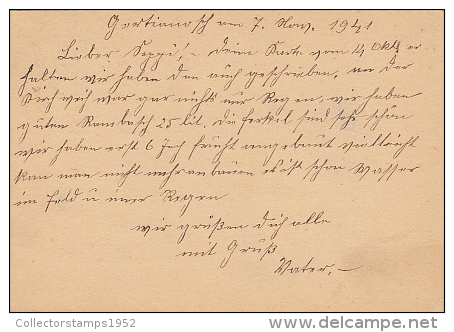 Gertianosch am 7. Nov. 1941
Lieber Seppi! – deine Karte vom 4 Okt er
halten wir haben dir auch geschrieben, an der
Kirchweih war gar nichts nur Regen, wir haben
guten 25 lit. die Ferkel sind sehr schön
wir haben erst 6 Joch frucht angebaut vielleicht
kan man nicht mehr anbauen es ist schon Wasser
im Feld u imer Regen
wir grüßen dich alle
mit Gruß
Vater. –
Collectorstamps1952
delcampe.net